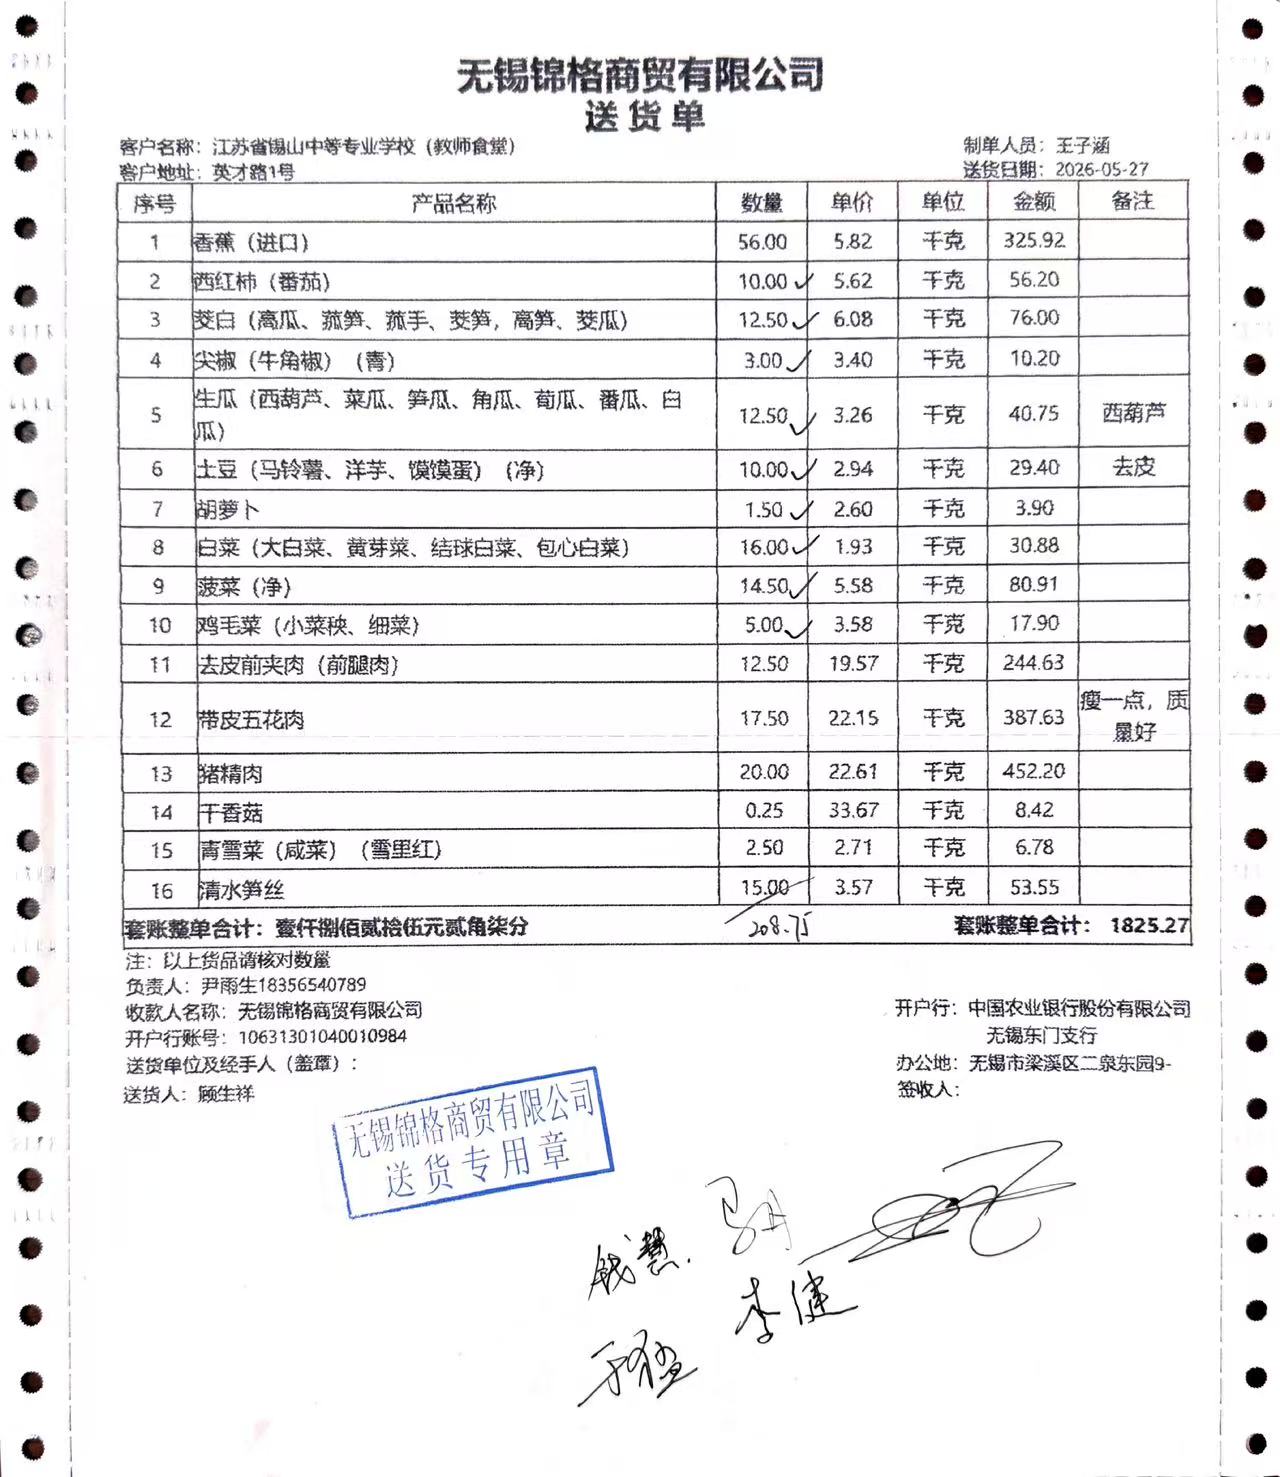 无锡锦格商贸有限公司
送货单
客户名称：江苏省锡山中等专业学校（教师食堂） 制单人员：王子涵
客户地址：英才路1号 送货日期：2026-05-27
序号 产品名称 数量 单价 单位 金额 备注
1 香蕉（进口） 56.00 5.82 千克 325.92
2 西红柿（番茄） 10.00 ✓ 5.62 千克 56.20
3 茭白（高瓜、菰笋、菰手、茭笋，高笋、茭瓜） 12.50 ✓ 6.08 千克 76.00
4 尖椒（牛角椒）（青） 3.00 ✓ 3.40 千克 10.20
5 生瓜（西葫芦、菜瓜、笋瓜、角瓜、荀瓜、番瓜、白 12.50 ✓ 3.26 千克 40.75 西葫芦
瓜）
6 土豆（马铃薯、洋芋、馍馍蛋）（净） 10.00 ✓ 2.94 千克 29.40 去皮
7 胡萝卜 1.50 ✓ 2.60 千克 3.90
8 白菜（大白菜、黄芽菜、结球白菜、包心白菜） 16.00 ✓ 1.93 千克 30.88
9 菠菜（净） 14.50 ✓ 5.58 千克 80.91
10 鸡毛菜（小菜秧、细菜） 5.00 ✓ 3.58 千克 17.90
11 去皮前夹肉（前腿肉） 12.50 19.57 千克 244.63
12 带皮五花肉 17.50 22.15 千克 387.63 瘦一点，质
量好
13 猪精肉 20.00 22.61 千克 452.20
14 干香菇 0.25 33.67 千克 8.42
15 青雪菜（咸菜）（雪里红） 2.50 2.71 千克 6.78
16 清水笋丝 15.00 3.57 千克 53.55
套账整单合计：壹仟捌佰贰拾伍元贰角柒分 208.75 套账整单合计： 1825.27
注：以上货品请核对数量
负责人：尹雨生18356540789
收款人名称：无锡锦格商贸有限公司 开户行：中国农业银行股份有限公司
开户行账号：10631301040010984 无锡东门支行
送货单位及经手人（盖章）： 办公地：无锡市梁溪区二泉东园9-
送货人：顾生祥 签收人：
无锡锦格商贸有限公司
送货专用章
钱慧
李健